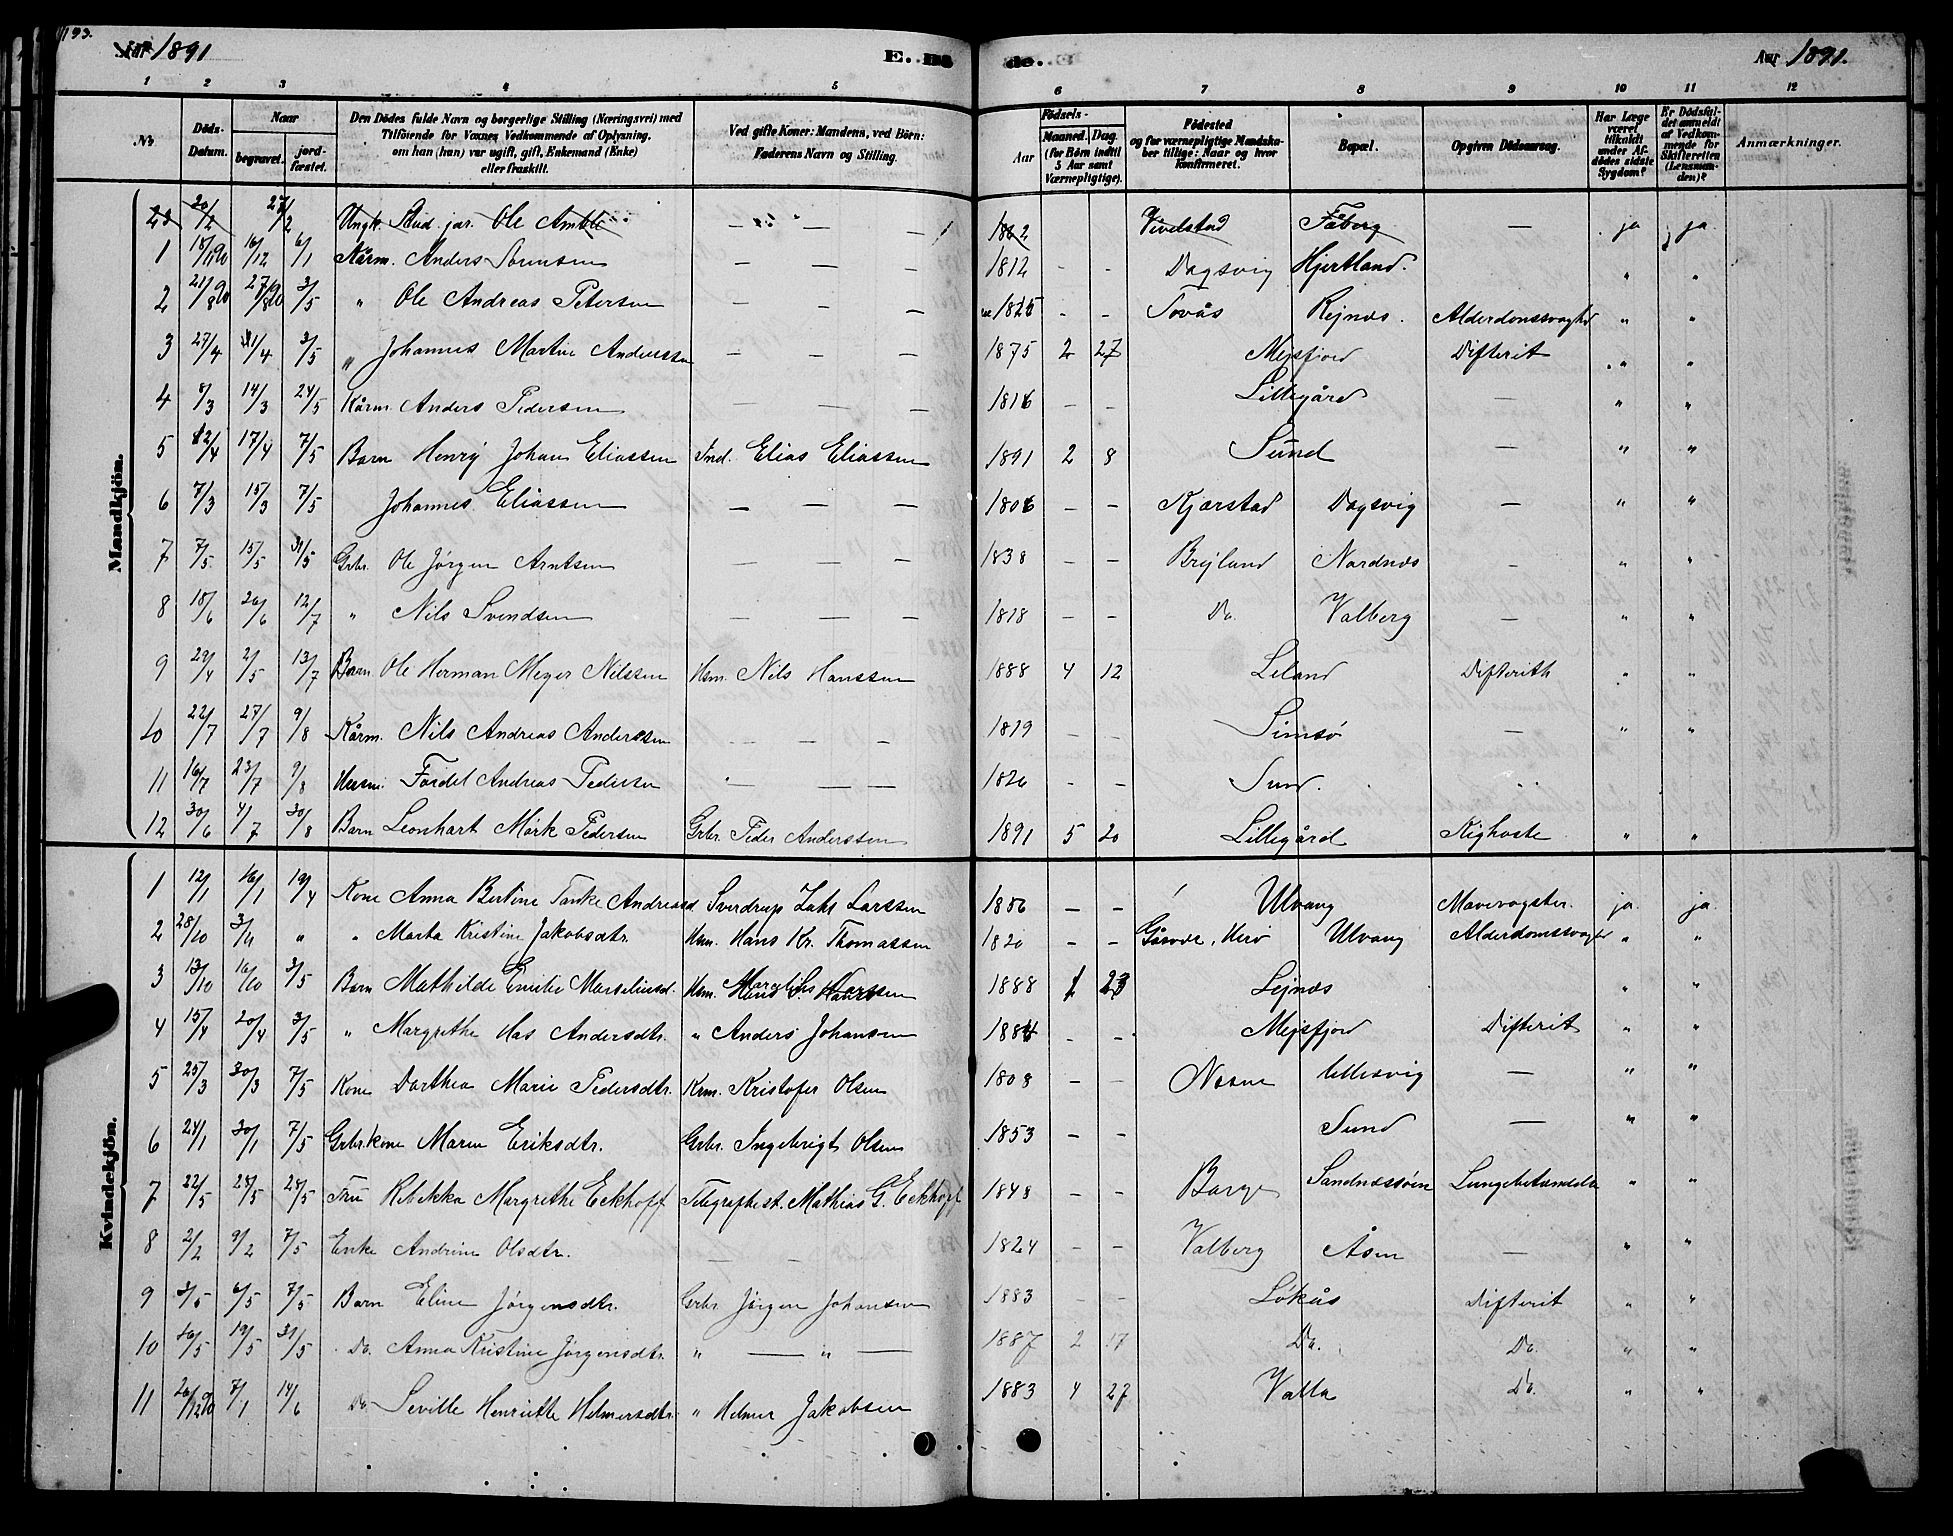 193.
Aar 1891 E. Dø de. Aar 1891.
1 2 3 4 5 6 7 8 9 10 11 12
No. Döds-Datum. Naar begravet. jordfæstet. Den Dödes fulde Navn og borgerlige Stilling (Næringsvei) med Tilföiende for Voxnes Vedkommende af Oplysning, om han (hun) var ugift, gift, Enkemand (Enke) eller fraskilt. Ved gifte Koner: Mandens, ved Börn: Faderens Navn og Stilling. Födsels- Aar Maaned. Dag. (for Börn indtil 5 Aar samt Værnepligtige). Födested og for værnepligtige Mandskaber tillige: Naar og hvor konfirmeret. Bopæl. Opgiven Dödsaarsag. Har Læge været tilkaldt under Afdödes sidste Sygdom? Er Dödsfaldet anmeldt af Vedkommende for Skifteretten (Lensmanden)? Anmærkninger.
Mandkjön.
23 20/2 27/2 Ungk. Stud. jur. Ole Amble — — — 1862 Vivelstad Faberg — ja ja
1 18/11 90 16/12 6/1 Kårm. Anders Sørensen — — — 1812 - - Dagsvig Hjertland. " "
2 21/8 90 27/8 90 3/5 " Ole Andreas Petersen — — — 1825 - - Tovås Rejnes. Alderdomssvaghed " "
3 27/4 31/4 3/5 " Johannes Martin Anderssen — — — 1875 2 27 Mejsfjord Difterit " "
4 8/3 14/3 24/5 Kårm. Anders Pedersen — — — 1816 - - Lillegård — " "
5 12/4 17/4 7/5 Barn Henry Johan Eliassen Ind. Elias Eliassen 1891 2 8 Sund — " "
6 7/3 15/3 7/5 Johannes Eliassen — — — 1806 - - Kjærstad Dagsvig — " "
7 7/5 15/5 31/5 Grbr. Ole Jørgen Arntsen — — — 1838 - - Brejland Nordnes — " "
8 18/6 26/6 12/7 " Nils Svendsen — — — 1818 - - Do. Valberg — " "
9 29/4 2/5 13/7 Barn Ole Herman Meyer Nilssen Hsm. Nils Hanssen 1888 4 12 Leland Difterith " "
10 22/7 27/7 9/8 Kårm. Nils Andreas Anderssen — — — 1819 - - Simsø — " "
11 16/7 23/7 9/8 Husm. Fordel Andreas Pedersen — — — 1826 - - Sund. " "
12 30/6 4/7 30/8 Barn Leonhart Mørk Pedersen Grbr. Peder Anderssen 1891 5 20 Lillegård Kighoste " "
Kvindekjön.
1 12/1 16/1 19/4 Kone Anna Bertine Tanke Andreasd. Sverdrup Zahl Larssen 1856 - - Ulvang Mavevogster. ja ja
2 28/10 3/11 " " Marta Kristine Jakobsdtr. Hsm. Hans Kr. Thomassen 1820 - - Herø Ulvang Alderdomssvaghed " "
3 13/10 16/10 3/5 Barn Mathilde Emilie Marseliusd. Hsm. Marselius Larssen 1888 1 23 Lejnes " "
4 15/4 20/4 3/5 " Margrethe Has Andersdtr. " Anders Johansen 1884 - - Mejsfjord Difterit " "
5 25/3 30/3 7/5 Kone Dorthea Marie Pedersdtr. Krm. Kristofer Olsen 1808 - - Nesne Ullesvig — " "
6 24/1 30/1 7/5 Grbr.kone Maren Eriksdtr. Grbr. Ingebrigt Olsen 1853 - - Sund — " "
7 22/5 28/5 28/5 Fru Rebekka Margrethe Eckhoff Telegrafbest. Mathias G. Eckhoff 1848 - - Borge Sandnessøen Lungebetændelse " "
8 2/2 9/2 7/5 Enke Andrine Olsdtr. — — 1824 - - Valberg Åsen — " "
9 3/5 6/5 7/5 Barn Eline Jørgensdtr. Grbr Jørgen Johansen 1883 - - Løkås Difterit " "
10 16/5 19/5 31/5 Do. Anna Kristine Jørgensdtr. " — " — 1887 2 17 Do. Do. " "
11 26/12 90 7/1 14/6 Do. Seville Henriette Helmersdtr. " Helmer Jakobsen 1883 4 27 Valla Do. " "